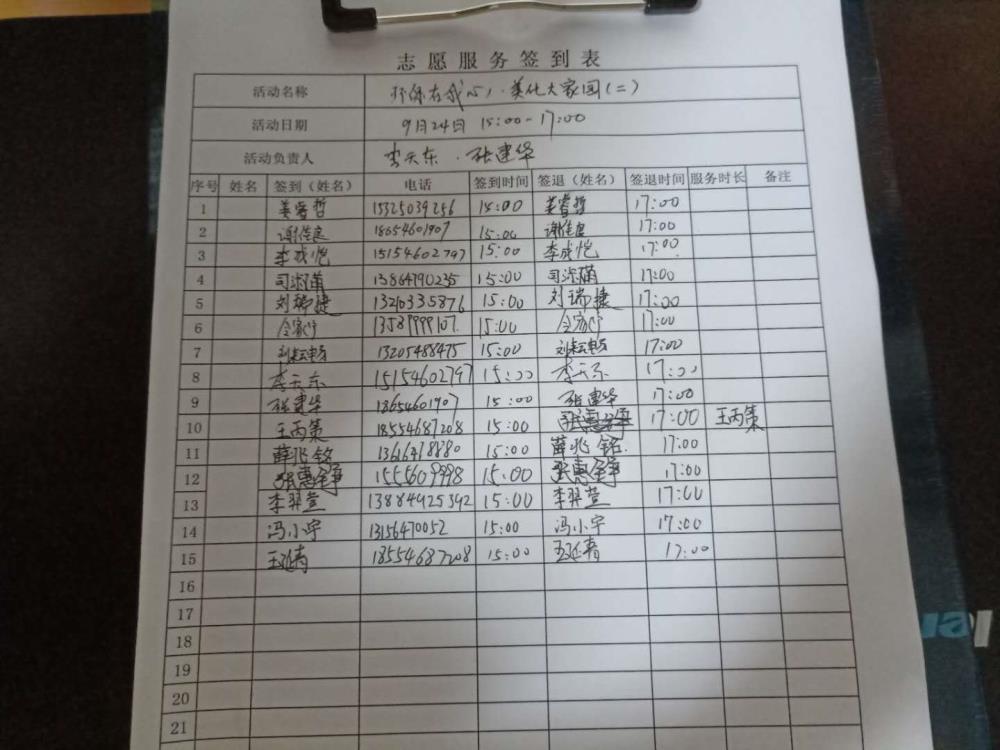 志愿服务签到表
活动名称 环保在我心,美化大家园(二)
活动日期 9月24日 15:00-17:00
活动负责人 李天东 . 张建华
序号 姓名 签到(姓名) 电话 签到时间 签退(姓名) 签退时间 服务时长 备注
1 姜睿哲 15325039256 15:00 姜睿哲 17:00
2 谢佳良 18654601907 15:00 谢佳良 17:00
3 李成恺 15154602797 15:00 李成恺 17:00
4 司淑菡 13864790235 15:00 司淑菡 17:00
5 刘瑞捷 13210335876 15:00 刘瑞捷 17:00
6 13589999107. 15:00 17:00
7 13205488475 15:00 17:00
8 李天东 15154602797 15:00 李天东 17:00
9 张建华 18654601907 15:00 张建华 17:00
10 王丙策 18554687208 15:00 17:00 王丙策
11 薛兆铭 13616478880 15:00 薛兆铭. 17:00
12 张惠铮 1555609998 15:00 张惠铮 17:00
13 李羿萱 13884925392 15:00 李羿萱 17:00
14 冯小宇 13156470052 15:00 冯小宇 17:00
15 王延青 18554687208 15:00 王延青 17:00
16
17
18
19
20
21